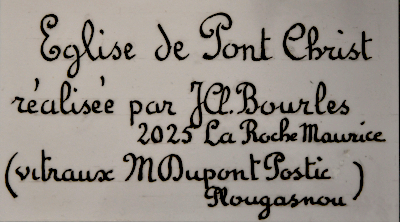 Eglise de Pont Christ
réalisée par JCl. Bourles
2025 La Roche Maurice
(vitraux M Dupont Postic
Plougasnou)